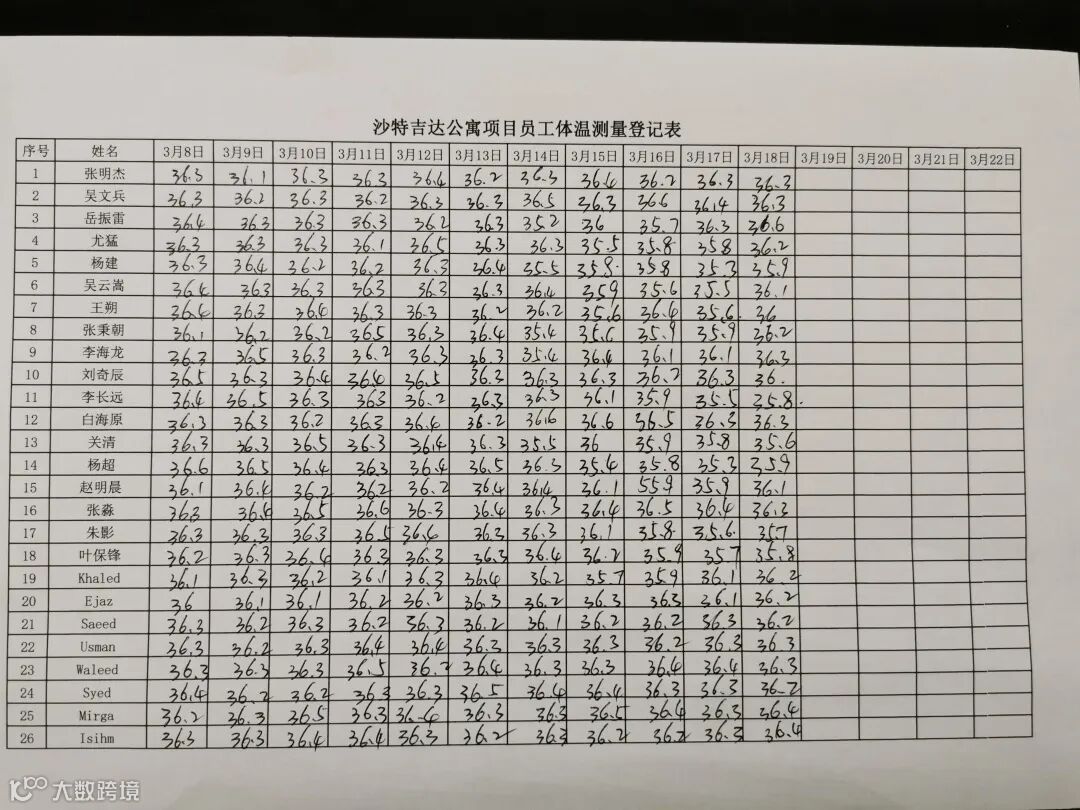 沙特吉达公寓项目员工体温测量登记表
序号 姓名 3月8日 3月9日 3月10日 3月11日 3月12日 3月13日 3月14日 3月15日 3月16日 3月17日 3月18日 3月19日 3月20日 3月21日 3月22日
1 张明杰 36.3 36.1 36.3 36.3 36.4 36.2 36.3 36.4 36.2 36.3 36.3
2 吴文兵 36.3 36.2 36.3 36.2 36.3 36.3 36.5 36.3 36.6 36.4 36.3
3 岳振雷 36.4 36.3 36.3 36.3 36.2 36.3 35.2 36 35.7 36.3 36.6
4 尤猛 36.3 36.3 36.3 36.1 36.5 36.3 36.3 35.5 35.8 35.8 36.2
5 杨建 36.3 36.4 36.2 36.2 36.3 36.4 35.5 35.8 35.8 35.3 35.9
6 吴云嵩 36.4 36.3 36.3 36.3 36.3 36.3 36.4 35.9 35.6 35.5 36.1
7 王朔 36.4 36.3 36.4 36.3 36.3 36.2 36.2 35.6 36.4 35.6 36
8 张秉朝 36.1 36.2 36.2 36.5 36.3 36.4 35.4 35.6 35.9 35.9 36.2
9 李海龙 36.3 36.5 36.3 36.2 36.3 36.3 35.4 36.4 36.1 36.1 36.3
10 刘奇辰 36.5 36.3 36.4 36.4 36.5 36.3 36.3 36.3 36.2 36.3 36.
11 李长远 36.4 36.5 36.3 36.3 36.2 36.3 36.3 36.1 35.9 35.5 35.8
12 白海原 36.3 36.3 36.2 36.3 36.4 36.2 36.6 36.6 36.5 36.3 36.3
13 关清 36.3 36.3 36.5 36.3 36.4 36.3 35.5 36 35.9 35.8 35.6
14 杨超 36.6 36.5 36.4 36.3 36.4 36.5 36.3 35.4 35.8 35.3 35.9
15 赵明晨 36.1 36.4 36.2 36.2 36.2 36.4 36.4 36.1 55.9 35.9 36.1
16 张淼 36.3 36.4 36.5 36.6 36.3 36.4 36.3 36.4 36.5 36.4 36.3
17 朱影 36.3 36.3 36.3 36.5 36.4 36.3 36.3 36.1 35.8 35.6 35.7
18 叶保锋 36.2 36.3 36.4 36.3 36.3 36.3 36.4 36.2 35.9 35.7 35.8
19 Khaled 36.1 36.3 36.2 36.1 36.3 36.4 36.2 35.7 35.9 36.1 36.2
20 Ejaz 36 36.1 36.1 36.2 36.2 36.3 36.2 36.3 36.3 36.1 36.2
21 Saeed 36.3 36.2 36.3 36.2 36.3 36.2 36.1 36.2 36.2 36.3 36.2
22 Usman 36.3 36.2 36.3 36.4 36.4 36.3 36.3 36.3 36.2 36.3 36.3
23 Waleed 36.3 36.3 36.3 36.5 36.2 36.4 36.3 36.3 36.4 36.4 36.3
24 Syed 36.4 36.2 36.2 36.3 36.3 36.5 36.4 36.4 36.3 36.3 36.2
25 Mirga 36.2 36.3 36.5 36.3 36.4 36.3 36.3 36.5 36.4 36.3 36.4
26 Isihm 36.3 36.3 36.4 36.4 36.3 36.2 36.3 36.2 36.2 36.3 36.4
大数跨境